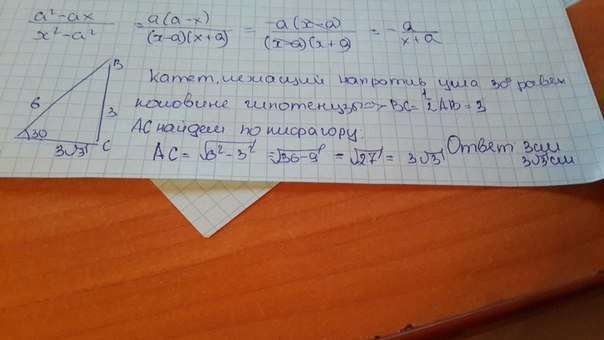 (a² - ax)/(x² - a²) = a(a-x)/((x-a)(x+a)) = -a(x-a)/((x-a)(x+a)) = -a/(x+a)
B
6
3
30
C
3√3
Катет, лежащий напротив угла 30° равен
половине гипотенузы => BC = ½AB = 3
AC найдем по пифагору.
AC = √(6²-3²) = √(36-9) = √27 = 3√3 Ответ 3см
3√3см